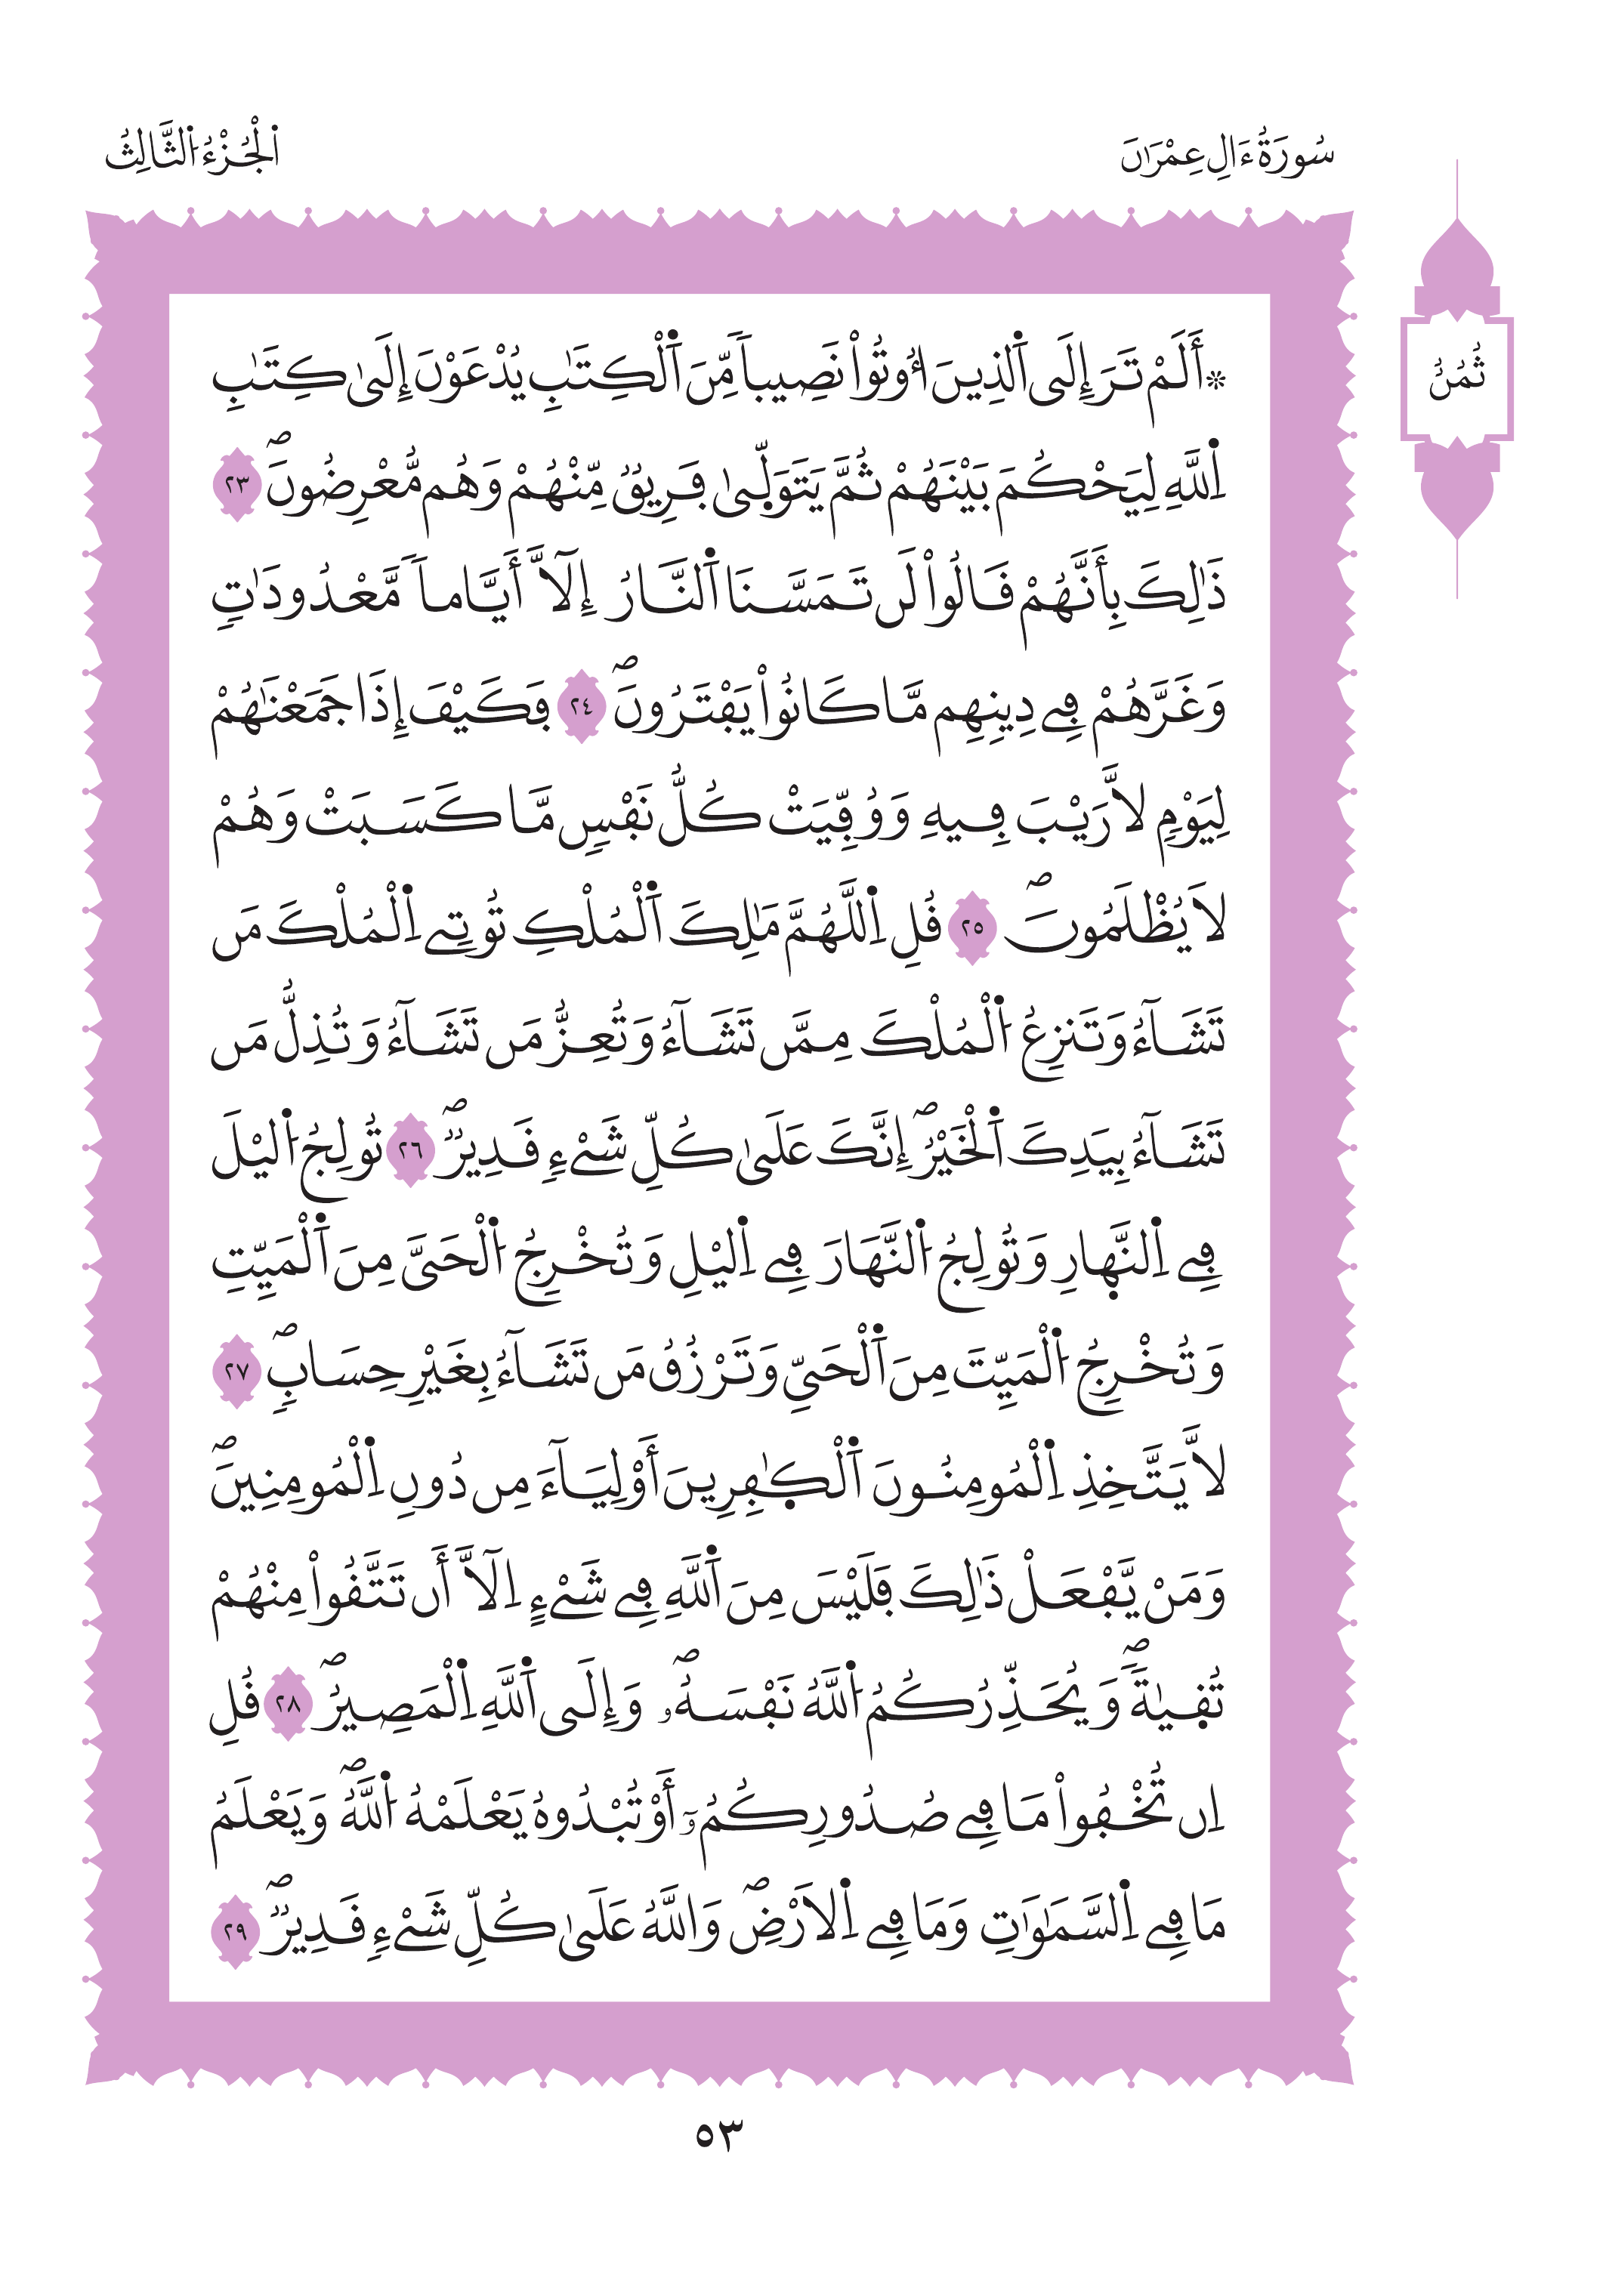 سُورَةُ ءَالِ عِمْرَٰنَ
اَ۬لْجُزْءُ اُ۬لثَّالِثُ
ثُمُنٌ
۞أَلَمْ تَرَ إِلَى اَ۬لذِينَ أُوتُواْ نَصِيباٗ مِّنَ اَ۬لْكِتَٰبِ يُدْعَوْنَ إِلَىٰ كِتَٰبِ
اِ۬للَّهِ لِيَحْكُمَ بَيْنَهُمْ ثُمَّ يَتَوَلّ۪ىٰ فَرِيقٞ مِّنْهُمْ وَهُم مُّعْرِضُونَۖ ٢٣
ذَٰلِكَ بِأَنَّهُمْ قَالُواْ لَن تَمَسَّنَا اَ۬لنَّارُ إِلَّآ أَيَّاماٗ مَّعْدُودَٰتٖ
وَغَرَّهُمْ فِے دِينِهِم مَّا كَانُواْ يَفْتَرُونَۖ ٢٤ فَكَيْفَ إِذَا جَمَعْنَٰهُمْ
لِيَوْمٖ لَّا رَيْبَ فِيهِ وَوُفِّيَتْ كُلُّ نَفْسٖ مَّا كَسَبَتْ وَهُمْ
لَا يُظْلَمُونَۖ ٢٥ قُلِ اِ۬للَّهُمَّ مَٰلِكَ اَ۬لْمُلْكِ تُوتِے اِ۬لْمُلْكَ مَن
تَشَآءُ وَتَنزِعُ اُ۬لْمُلْكَ مِمَّن تَشَآءُ وَتُعِزُّ مَن تَشَآءُ وَتُذِلُّ مَن
تَشَآءُ بِيَدِكَ اَ۬لْخَيْرُۖ إِنَّكَ عَلَىٰ كُلِّ شَےْءٖ قَدِيرٞۖ ٢٦ تُولِجُ اُ۬ليْلَ
فِے اِ۬لنَّه۪ارِ وَتُولِجُ اُ۬لنَّهَارَ فِے اِ۬ليْلِ وَتُخْرِجُ اُ۬لْحَيَّ مِنَ اَ۬لْمَيِّتِ
وَتُخْرِجُ اُ۬لْمَيِّتَ مِنَ اَ۬لْحَيِّ وَتَرْزُقُ مَن تَشَآءُ بِغَيْرِ حِسَابٖۖ ٢٧
لَّا يَتَّخِذِ اِ۬لْمُومِنُونَ اَ۬لْكٰ۪فِرِينَ أَوْلِيَآءَ مِن دُونِ اِ۬لْمُومِنِينَۖ
وَمَنْ يَّفْعَلْ ذَٰلِكَ فَلَيْسَ مِنَ اَ۬للَّهِ فِے شَےْءٍ اِلَّآ أَن تَتَّقُواْ مِنْهُمْ
تُق۪يٰةٗۖ وَيُحَذِّرُكُمُ اُ۬للَّهُ نَفْسَهُۥۖ وَإِلَى اَ۬للَّهِ اِ۬لْمَصِيرُۖ ٢٨ قُلِ
اِن تُخْفُواْ مَا فِے صُدُورِكُمُۥٓ أَوْ تُبْدُوهُ يَعْلَمْهُ اُ۬للَّهُۖ وَيَعْلَمُ
مَا فِے اِ۬لسَّمَٰوَٰتِ وَمَا فِے اِ۬لَارْضِۖ وَاللَّهُ عَلَىٰ كُلِّ شَےْءٖ قَدِيرٞۖ ٢٩
٥٣